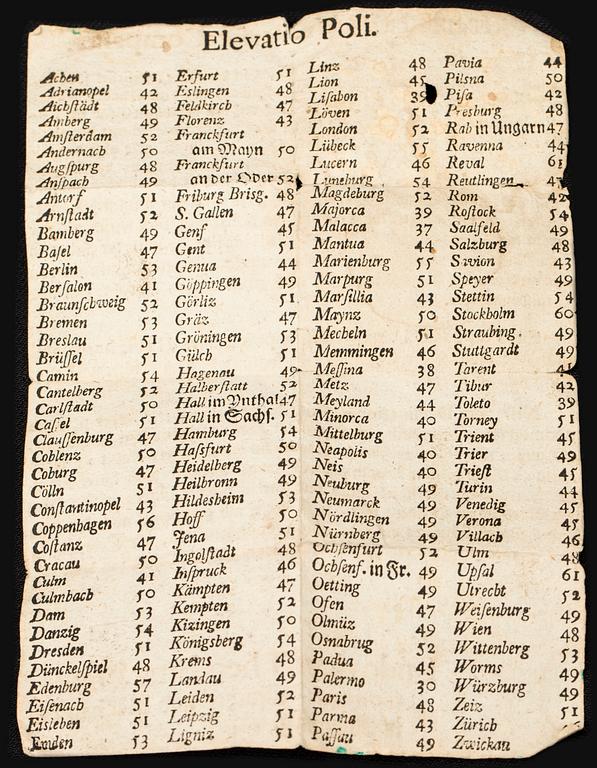 Elevatio Poli.
Achen 51
Adrianopel 42
Aichſtädt 48
Amberg 49
Amſterdam 52
Andernach 50
Augſpurg 48
Anſpach 49
Antorf 51
Arnſtadt 52
Bamberg 49
Baſel 47
Berlin 53
Berſalon 41
Braunſchweig 52
Bremen 53
Breslau 51
Brüſſel 51
Camin 54
Cantelberg 52
Carlſtadt 50
Caſſel 51
Clauſſenburg 47
Coblenz 50
Coburg 47
Cölln 51
Conſtantinopel 43
Coppenhagen 56
Coſtanz 47
Cracau 50
Culm 41
Culmbach 50
Dam 53
Danzig 54
Dresden 51
Dünckelſpiel 48
Edenburg 57
Eiſenach 51
Eisleben 51
Emden 53
Erfurt 51
Eslingen 48
Feldkirch 47
Florenz 43
Franckfurt
am Mayn 50
Franckfurt
an der Oder 52
Friburg Brisg. 48
S. Gallen 47
Genf 45
Gent 51
Genua 44
Göppingen 49
Görliz 51
Gräz 47
Gröningen 53
Gülch 51
Hagenau 49
Halberſtatt 52
Hall im Ynthal 47
Hall in Sachſ. 51
Hamburg 54
Haſsfurt 50
Heidelberg 49
Heilbronn 49
Hildesheim 53
Hoff 50
Jena 51
Ingolſtadt 48
Inſpruck 46
Kämpten 47
Kempten 52
Kizingen 50
Königsberg 54
Krems 48
Landau 49
Leiden 52
Leipzig 51
Ligniz 51
Linz 48
Lion 45
Liſabon 39
Löven 51
London 52
Lübeck 55
Lucern 46
Luneburg 54
Magdeburg 52
Majorca 39
Malacca 37
Mantua 44
Marienburg 55
Marpurg 51
Marſillia 43
Maynz 50
Mecheln 51
Memmingen 46
Meſſina 38
Metz 47
Meyland 44
Minorca 40
Mittelburg 51
Neapolis 40
Neis 40
Neuburg 49
Neumarck 49
Nördlingen 49
Nürnberg 49
Ochſenfurt 52
Ochſenf. in Fr. 49
Oetting 49
Ofen 47
Olmüz 49
Osnabrug 52
Padua 45
Palermo 30
Paris 48
Parma 43
Paſſau 49
Pavia 44
Pilsna 50
Piſa 42
Presburg 48
Rab in Ungarn 47
Ravenna 44
Reval 61
Reutlingen 47
Rom 42
Roſtock 54
Saalfeld 49
Salzburg 48
43
Speyer 49
Stettin 54
Stockholm 60
Straubing. 49
Stuttgardt 49
Tarent 41
Tibur 42
Toleto 39
Torney 51
Trient 45
Trier 49
Trieſt 45
Turin 44
Venedig 45
Verona 45
Villach 46
Ulm 48
Upſal 61
Utrecht 52
Weiſenburg 49
Wien 48
Wittenberg 53
Worms 49
Würzburg 49
Zeiz 51
Zürich
Zwickau